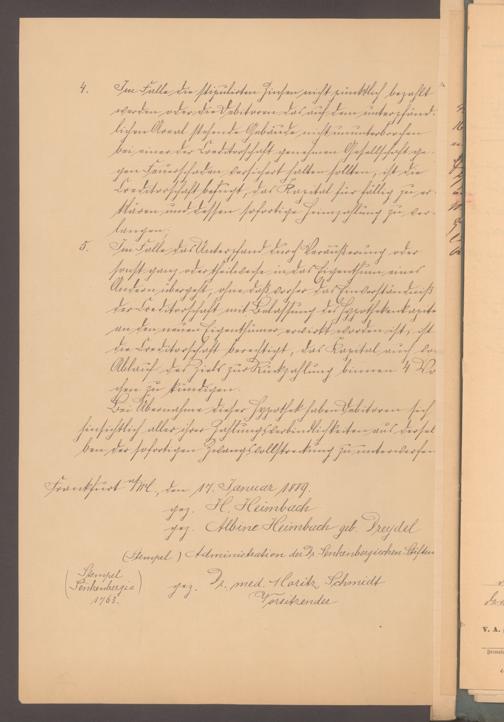 4. Im Falle die stipulirten Zinsen nicht pünktlich bezahlt
werden oder die Debitoren das auf dem unterpfänd-
lichen Areal stehende Gebäude nicht ununterbrochen
bei einer der Creditorschaft genehmen Gesellschaft ge-
gen Feuerschaden versichert halten sollten, ist die
Creditorschaft befugt, das Kapital für fällig zu er-
klären und dessen sofortige Heimzahlung zu ver-
langen.
5. Im Falle das Unterpfand durch Veräußerung oder
sonst ganz oder theilweise in das Eigenthum eines
Andern übergeht, ohne daß vorher das Einverständniß
der Creditorschaft mit Belassung des Hypothekenkapita
an den neuen Eigenthümer erwirkt worden ist, ist
die Creditorschaft berechtigt, das Kapital auch vor
Ablauf des Ziels zur Rückzahlung binnen 4 Wo
chen zu kündigen.
Bei Übernahme dieser Hypothek haben Debitoren sich
hinsichtlich aller ihrer Zahlungsverbindlichkeiten aus dersel
ben der sofortigen Zwangsvollstreckung zu unterwerfen
Frankfurt a/M., den 17. Januar 1889.
gez. H. Heimbach
gez. Albine Heimbach geb. Dreydel
(Stempel) Administration der Dr. Senkenbergischen Stiften
(Stempel
Senkenbergia
1763.)
gez. Dr. med. Moritz Schmidt
Vorsitzender
V. A.